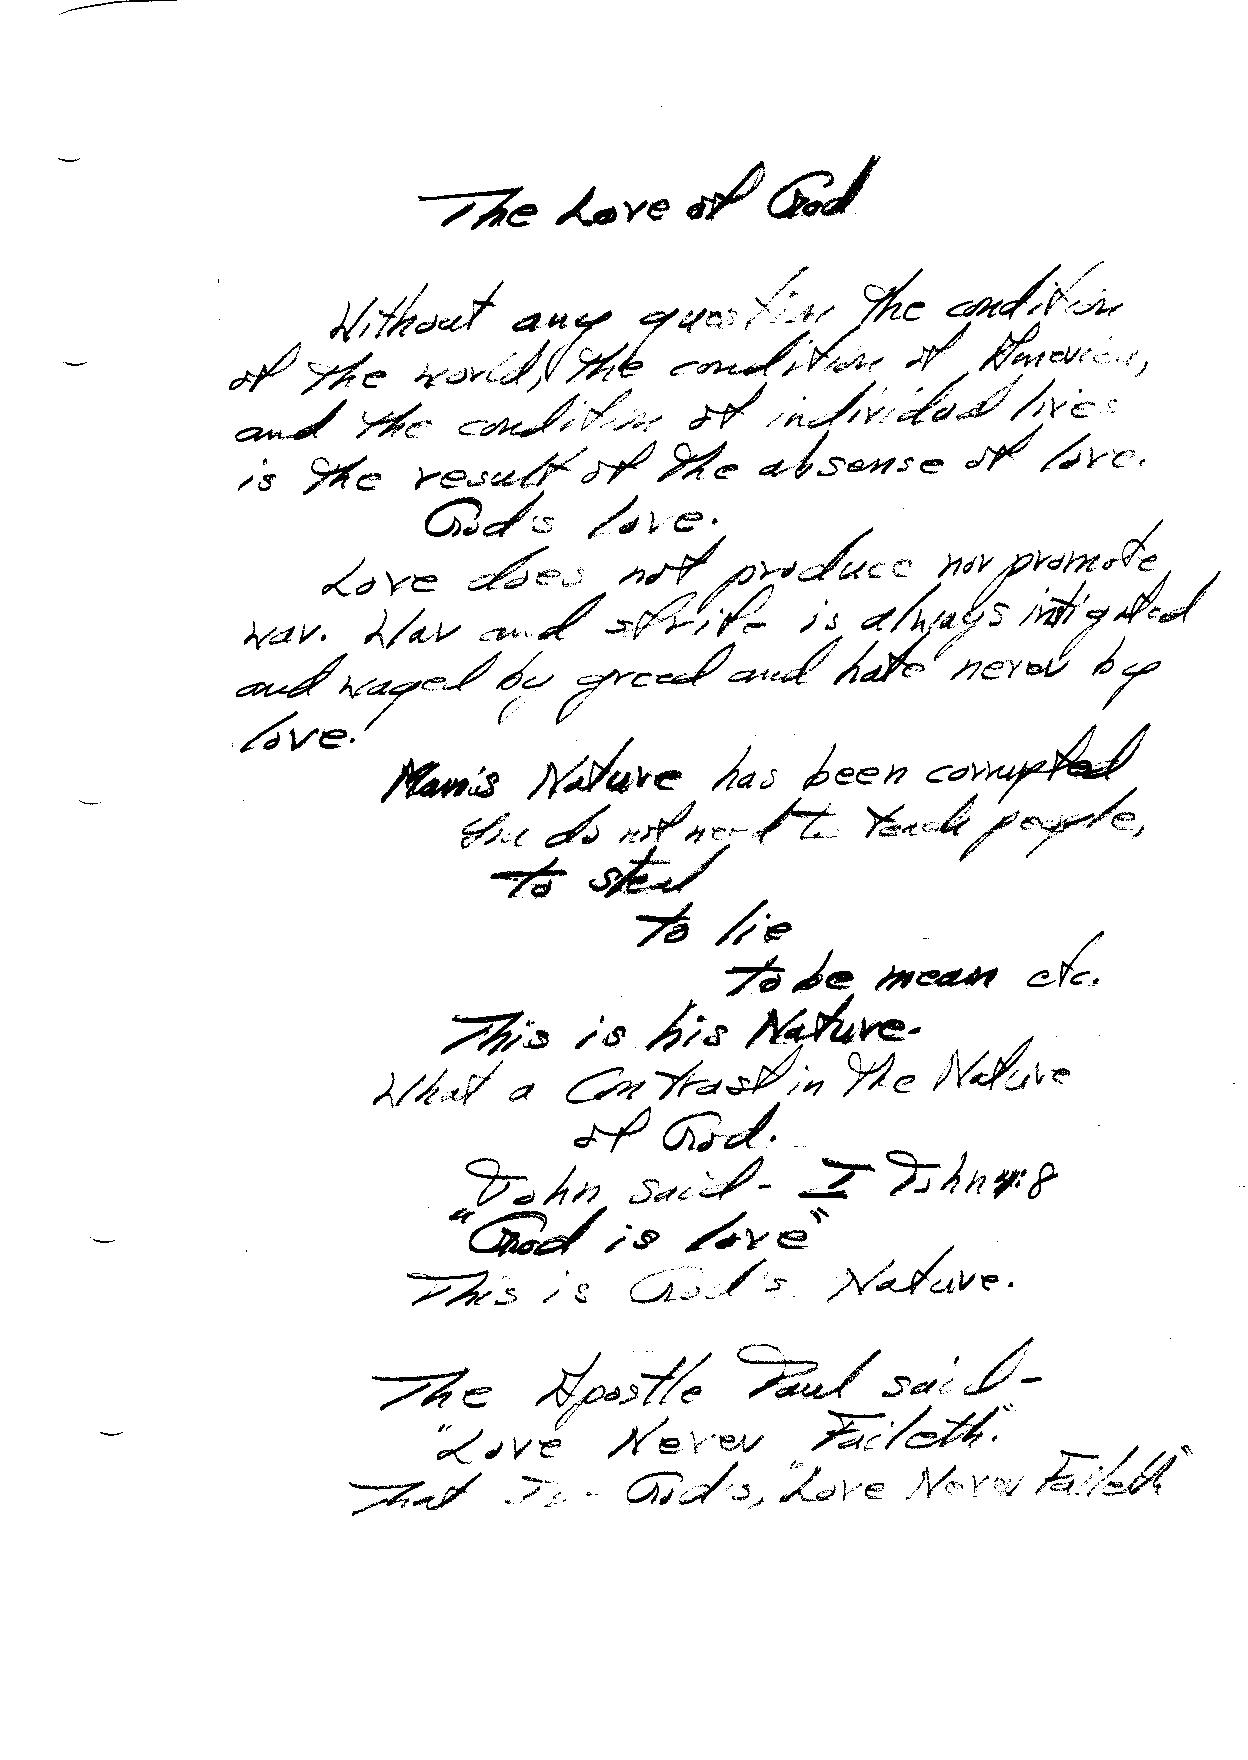 The Love of God
Without any question the condition
of the world, the condition of America,
and the condition of individual lives
is the result of the absense of love.
God's love.
Love does not produce nor promote
war. War and strife is always intigated
and waged by greed and hate never by
love.
Man's Nature has been corrupted
You do not need to teach people,
to steal
to lie
to be mean etc.
This is his Nature.
What a Contrast in the Nature
of God.
John said- I John 4:8
"God is love"
This is God's Nature.
The Apostle Paul said-
"Love Never Faileth."
That Is - God's, "Love Never Faileth"